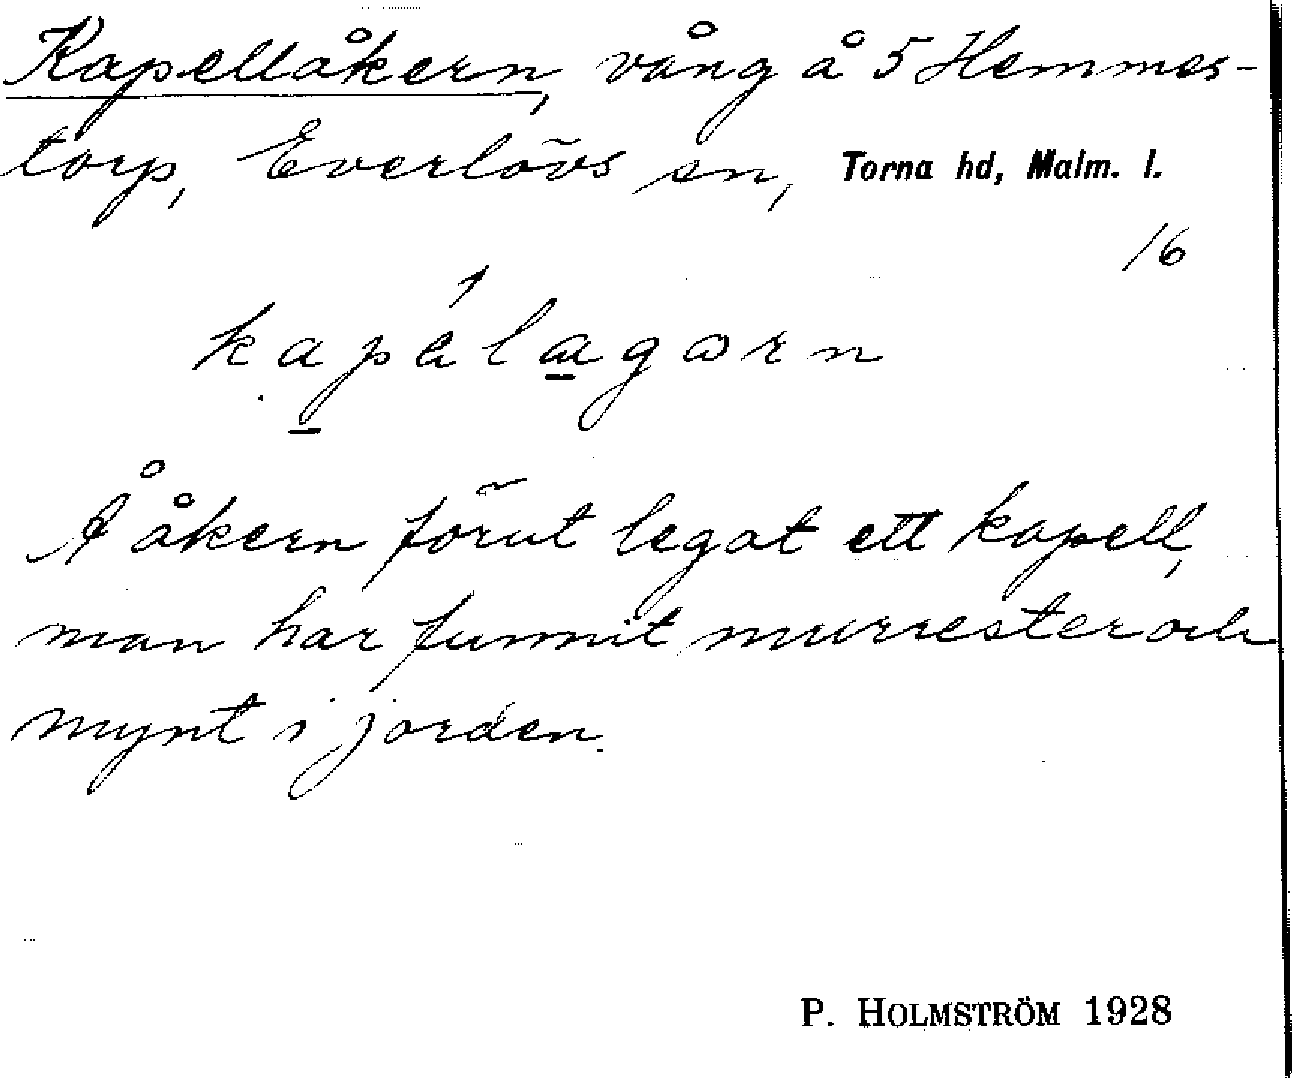 Kapellåkern, vång å 5 Hemmes-
torp, Everlövs sn, Torna hd, Malm. l.
16
kapälagarn
Å åkern förut legat ett kapell,
man har funnit murrester och
mynt i jorden.
P. HOLMSTRÖM 1928